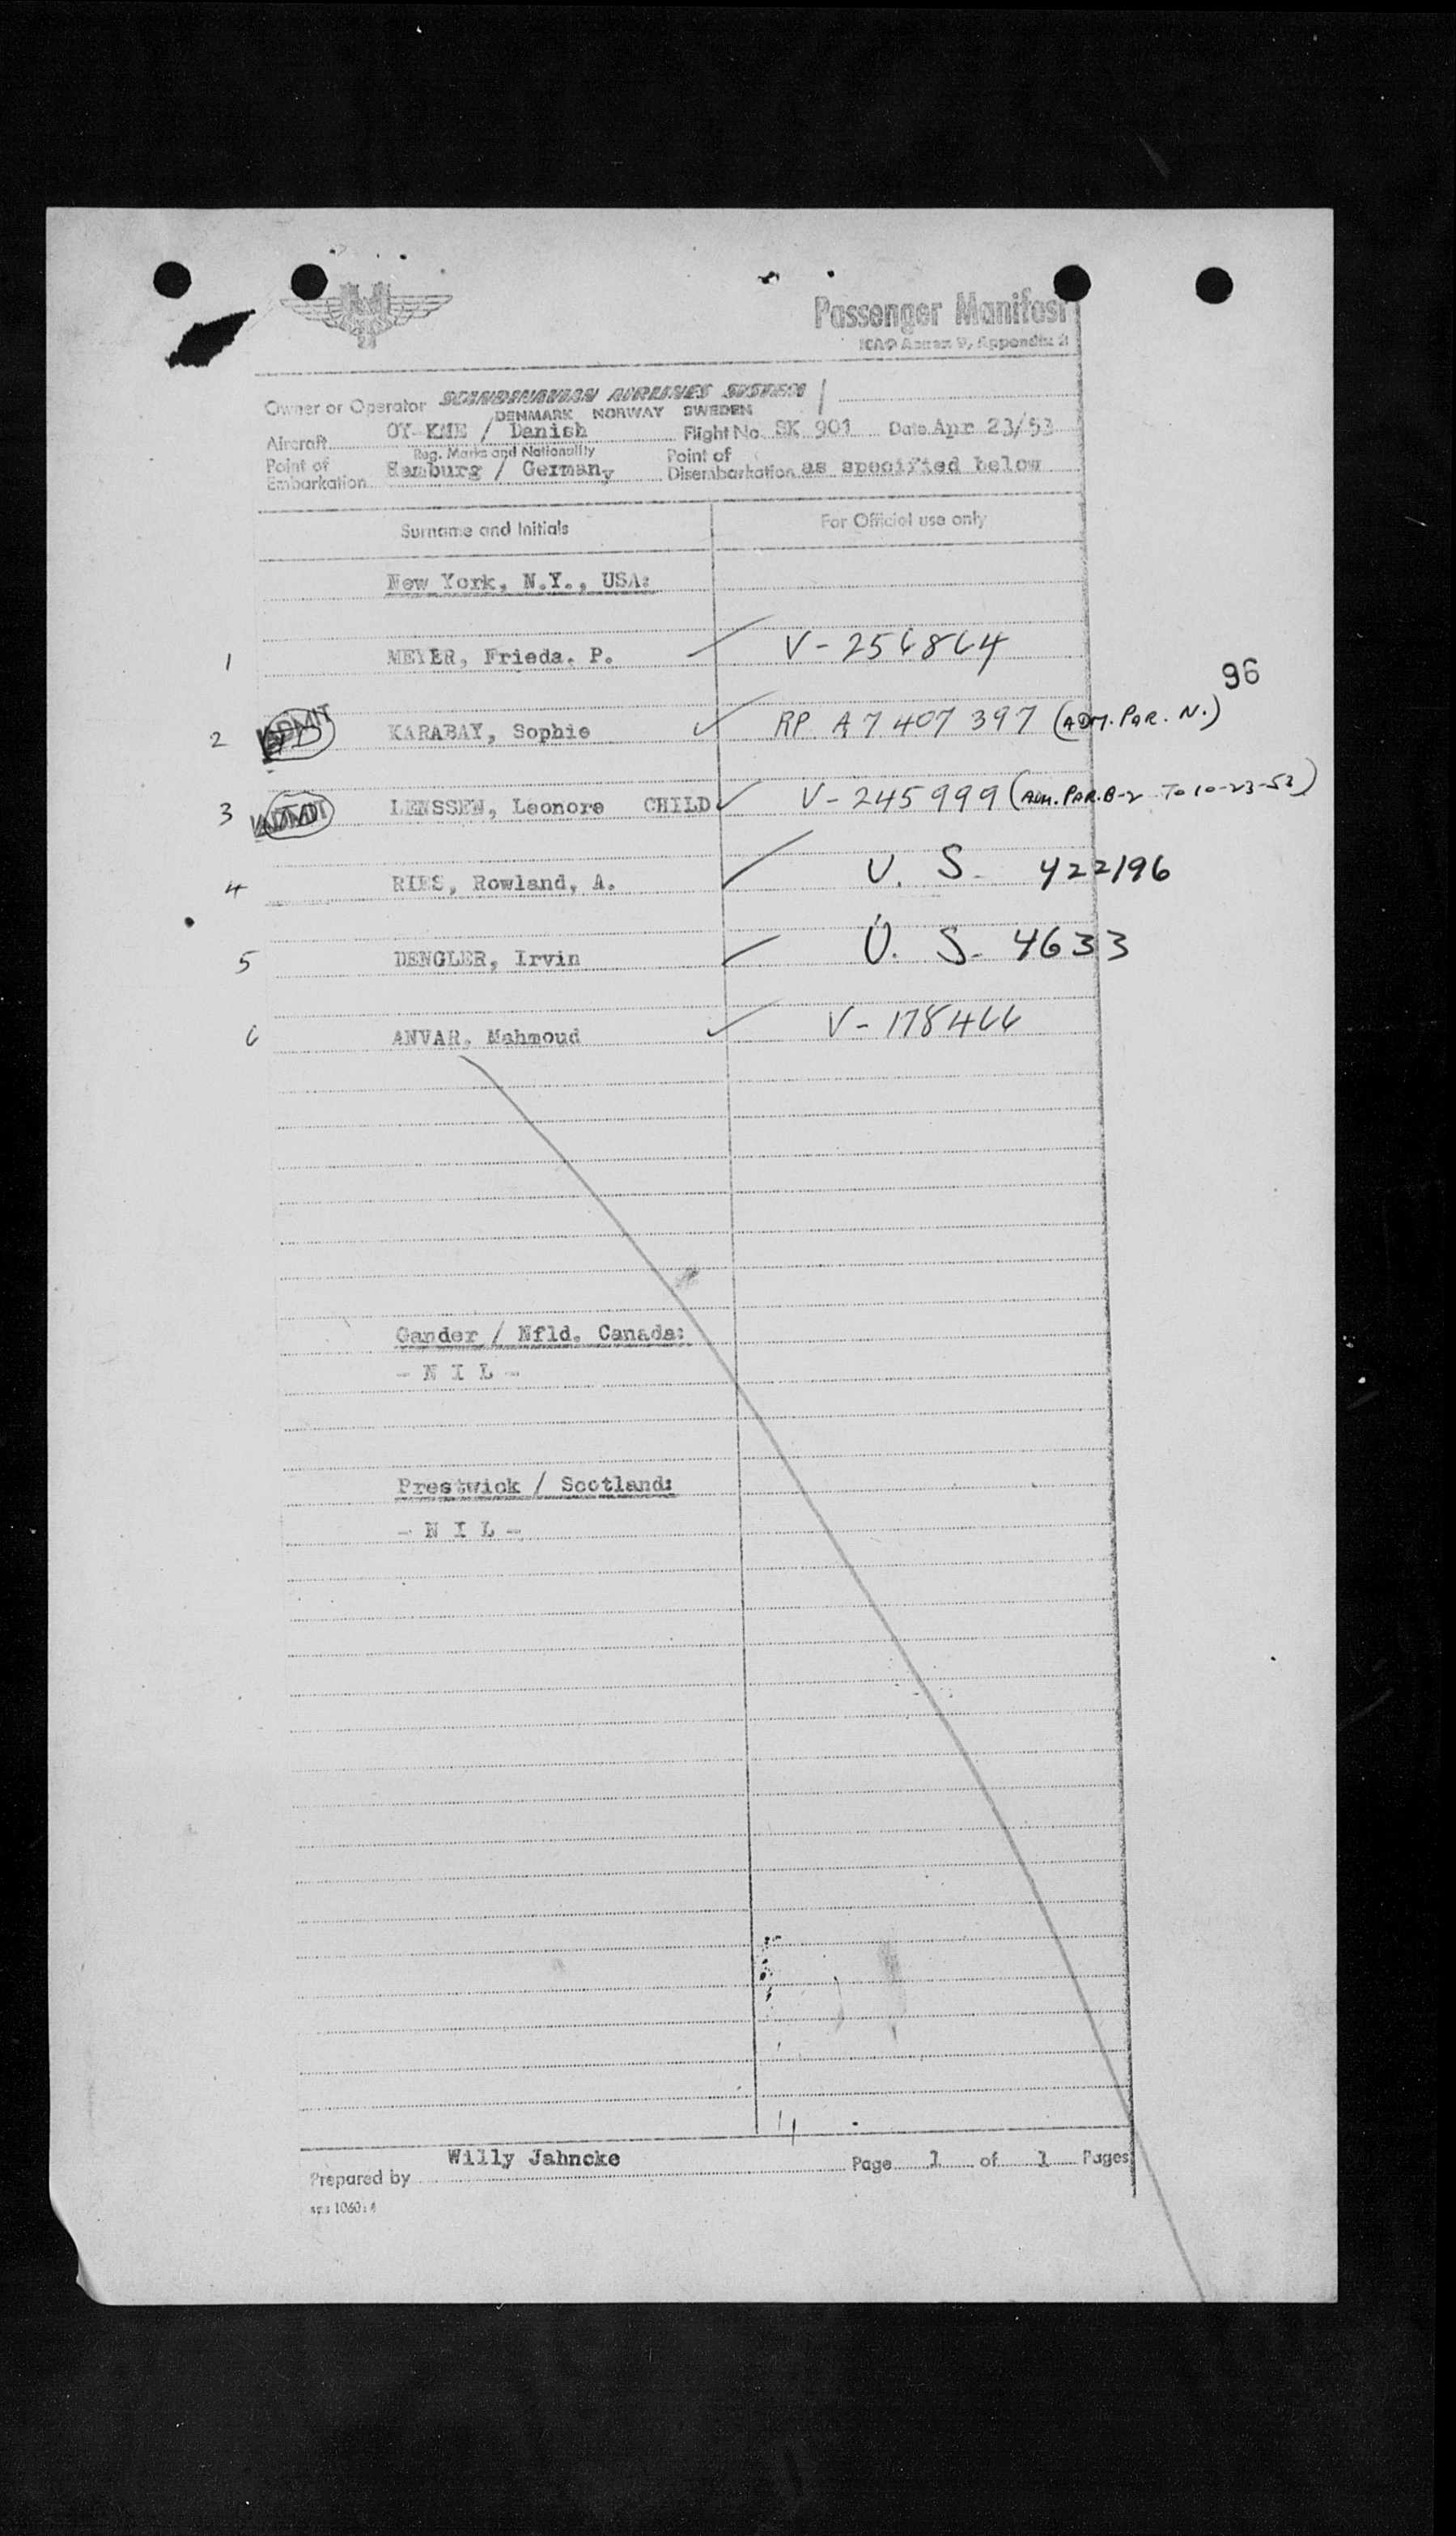 Passenger Manifest
ICAO Annex 9, Appendix 2
Owner or Operator SCANDINAVIAN AIRLINES SYSTEM
DENMARK NORWAY SWEDEN
Aircraft OY-KME / Danish Flight No. SK 901 Date Apr 23/53
Reg. Marks and Nationality
Point of Embarkation Hamburg / Germany Point of Disembarkation as specified below
Surname and Initials For Official use only
New York, N.Y., USA:
1 MEYER, Frieda. P. V-256864
96
2 ADMIT KARABAY, Sophie RP. A7 407 397 (ADM. PAR. N.)
3 ADMIT LENSSEN, Leonore CHILD V-245999 (ADM. PAR. B-2 To 10-23-53)
4 RIES, Rowland, A. U. S. 422196
5 DENGLER, Irvin U. S. 4633
6 ANVAR, Mahmoud V-178466
Gander / Nfld. Canada:
- N I L -
Prestwick / Scotland:
- N I L -
Willy Jahncke
Prepared by Page 1 of 1 Pages
1060:4